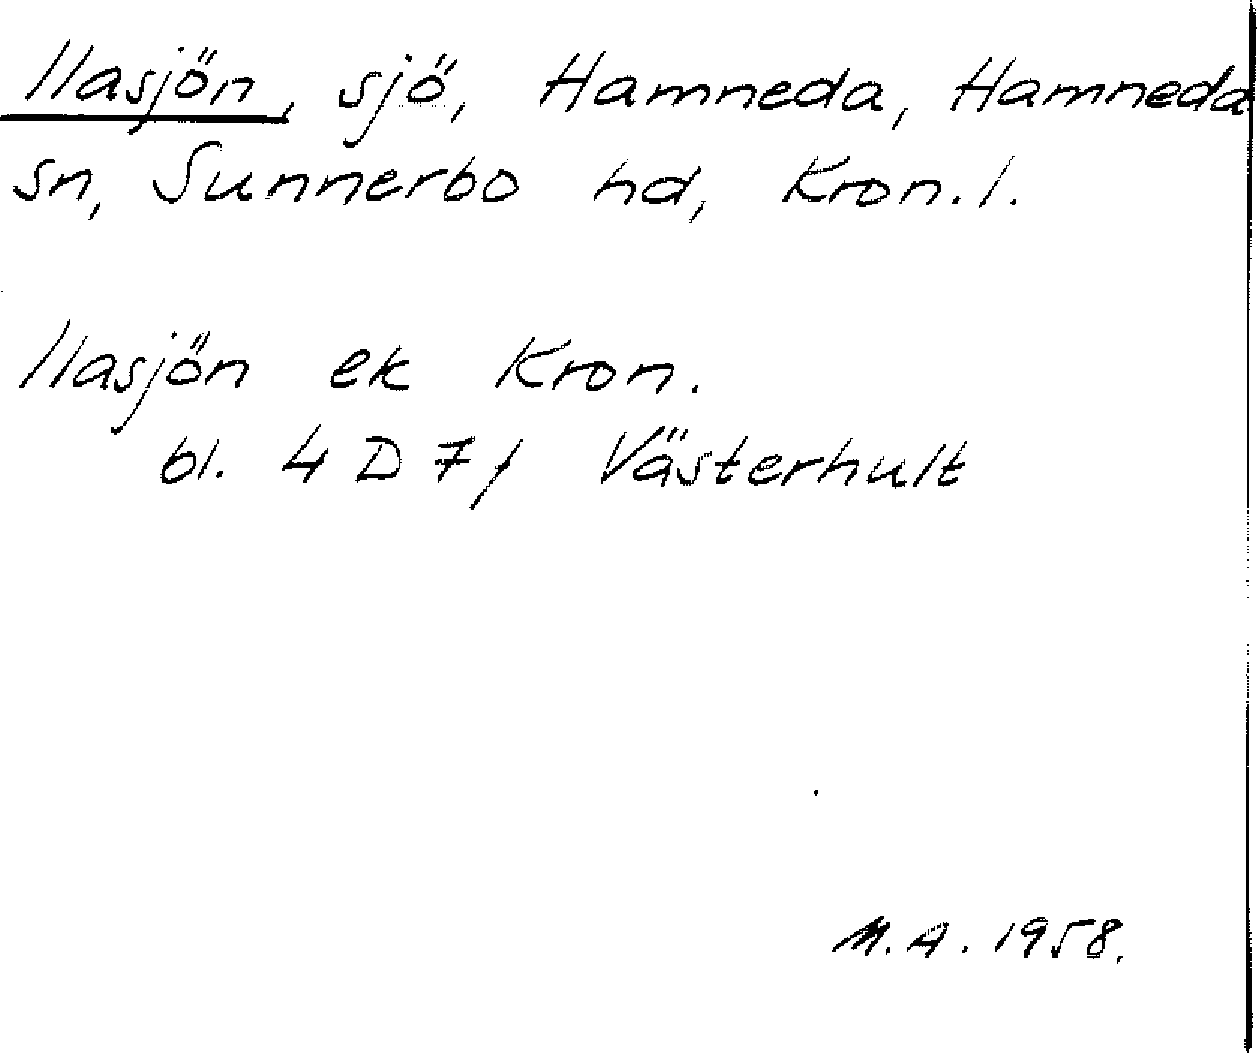 Ilasjön, sjö, Hamneda, Hamneda
sn, Sunnerbo hd, Kron. l.
Ilasjön ek Kron.
bl. 4 D 7 f Västerhult
M.A. 1958.